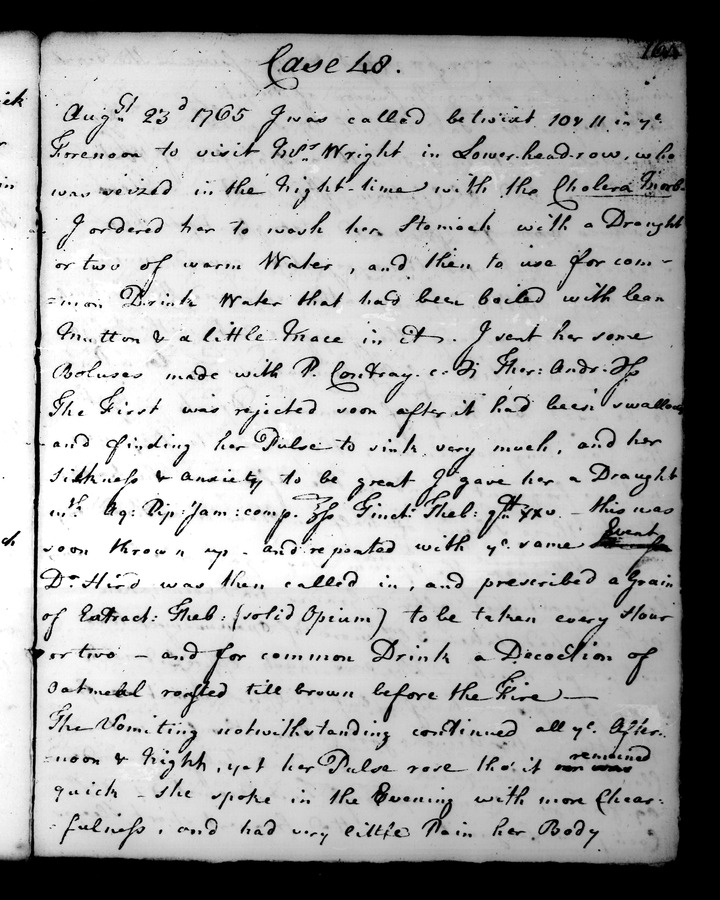 164
Case 48.
Augst 23d 1765 I was called betwixt 10 & 11 in ye
Forenoon to visit Mrs Wright in Lower-head-row, who
was seized in the Night-time with the Cholera Morb:
I ordered her to wash her Stomach with a Draught
or two of warm Water, and then to use for com-
=mon Drink Water that had been boiled with lean
Mutton & a little Mace in it. I sent her some
Boluses made with P. Contray. c. Ther: Andr: ʒſs
The First was rejected soon after it had been swallow
and finding her Pulse to sink very much, and her
Sickness & anxiety to be great I gave her a Draught
wth Aq: Pip: Jam: comp. ʒſs Tinct: Theb: gtt xxv. - this was
soon thrown up - and repeated with ye. same Event
Dr. Hird was then called in, and prescribed a Grain
of Extract: Theb: (solid Opium) to be taken every Hour
or two - and for common Drink a Decoction of
Oatmeal roasted till brown before the Fire -
The Vomiting notwithstanding continued all ye. After:
=noon & Night, yet her Pulse rose tho' it remained
quick - she spoke in the Evening with more Chear:
=fulness, and had very little Pain her Body
ick
in
ch